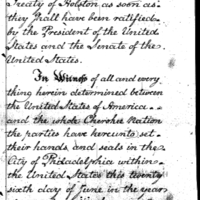 Treaty of Holston as soon as
they shall have been ratified
by the President of the United
States and the Senate of the
United States.
In Witness of all and every
thing herein determined between
the United States of America
and the whole Cherokee Nation
the parties have hereunto set
their hands, and seals in the
City of Philadelphia within
the United States this twenty
sixth day of June in the year